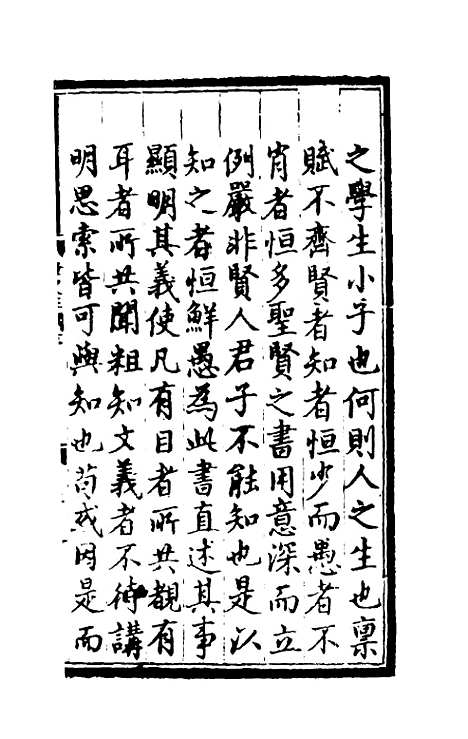 之學生小子也何則人之生也稟
賦不齊賢者知者恒少而愚者不
肖者恒多聖賢之書用意深而立
例嚴非賢人君子不能知也是以
知之者恒鮮愚為此書直述其事
顯明其義使凡有目者所共觀有
耳者所共聞粗知文義者不待講
明思索皆可與知也苟或因是而